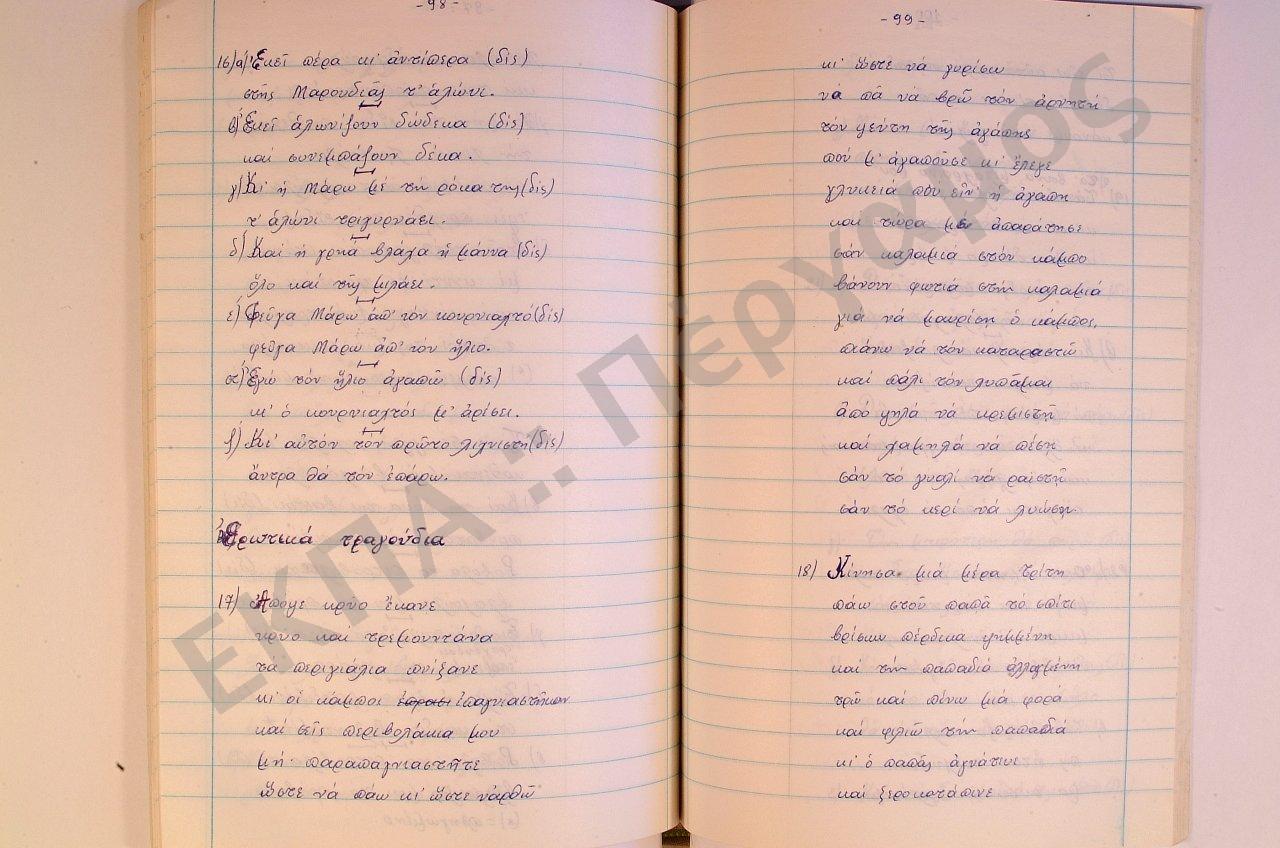 -98-
16) α) Ἐκεῖ πέρα κι' ἀντίπερα (δίς)
στῆς Μαρουδιᾶς τ' ἁλώνι.
β) Ἐκεῖ ἁλωνίζουν δώδεκα (δίς)
καί συνεμπάζουν δέκα.
γ) Κι' ἡ Μάρω μέ τη ρόκα της (δίς)
τ' ἁλώνι τριγυρνάει.
δ) Καί ἡ γρηά βλάχα ἡ μάννα (δίς)
ὅλο καί τῆς μιλάει.
ε) Φεῦγα Μάρω ἀπ' τόν κουρνιαχτό (δίς)
φεῦγα Μάρω ἀπ' τόν ἥλιο.
στ) Ἐγώ τόν ἥλιο ἀγαπῶ (δίς)
κι' ὁ κουρνιαχτός μ' ἀρέσει.
ζ) Κι' αὐτόν τόν πρῶτο λιχνιστή (δίς)
ἄντρα θά τόν ἐπάρω.
Ἐρωτικά τραγούδια
17) Ἀπόψε κρύο ἔκανε
κρύο καί τρεμουντάνα
τα περιγιάλια πνίξανε
κι' οἱ κάμποι ἐπαχνιαστῆκαν
καί σεῖς περιβολάκια μου
μή παραπαχνιαστῆτε
ὥστε νά πάω κι' ὥστε νάρθῶ
-99-
κι' ὥστε νά γυρίσω
να πᾶ νά βρῶ τόν ἀρνητή
τόν ψεύτη τῆς ἀγάπης
πού μ' ἀγαποῦσε κι' ἔλεγε
γλυκειά που εἶν' ἡ ἀγάπη
και τώρα με ἀπαράτησε
σάν καλαμιά στόν κάμπο
βάνουν φωτιά στήν καλαμιά
γιά νά μαυρίση ὁ κάμπος.
πιάνω νά τόν καταραστῶ
καί πάλι τόν λυπᾶμαι
ἀπό ψηλά νά κρεμιστῆ
καί χαμηλά νά πέση
σάν τό γυαλί νά ραϊστῆ
σάν τό κερί νά λυώση.
18) Κίνησα μιά μέρα Τρίτη
πάω στοῦ παπᾶ τό σπίτι
βρίσκω πέρδικα ψημένη
καί τήν παπαδιά ἀλλαγμένη
τρώ καί πίνω μιά φορά
καί φιλῶ τήν παπαδιά
κι' ὁ παπᾶς ἀγνάτευε
καί ξεροκατάπινε
ΕΚΠΑ :: Πέργαμος